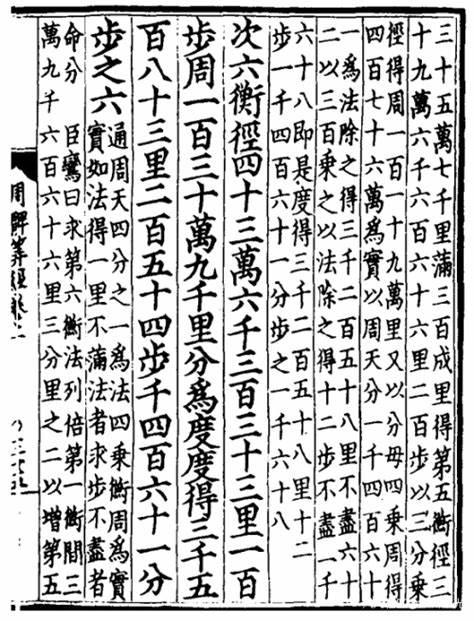 三十五萬七千里滿三百成里得第五衡徑三
十九萬六千六百六十六里二百步以三分乘
徑得周一百一十九萬里又以分毋四乘周得
四百七十六萬為實以周天分一千四百六十
一為法除之得三千二百五十八里不盡六十
二以三百乘之以法除之得十二步不盡一千
六十八即是度得三千二百五十八里十二
步一千四百六十一分步之一千六十八
次六衡徑四十三萬六千三百三十三里一百
步周一百三十萬九千里分為度度得三千五
百八十三里二百五十四步千四百六十一分
步之六
通周天四分之一為法四乘衡周為實
實如法得一里不滿法者求步不盡者
命分 臣鸞曰求第六衡法列倍第一衡間三
萬九千六百六十六里三分里之二以增第五
周髀算經卷上